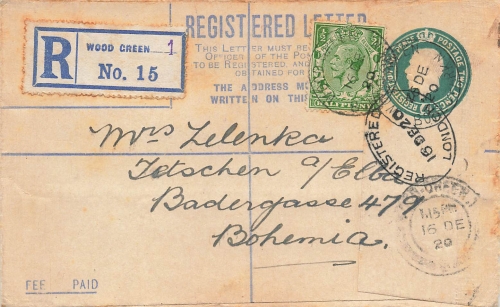 REGISTERED LETTER.
THIS LETTER MUST
OFFICER OF THE
TO BE REGISTERED, AND
OBTAINED FOR
THE ADDRESS
WRITTEN ON THIS
R
WOOD GREEN 1
No. 15
HALFPENNY
POSTAGE TWO PENCE
REGISTERED
16 DE 20
LONDON
16 DE
20
Mrs Zelenka
Tetschen a/Elbe
Badergasse 479
Bohemia.
GREEN
1.15 PM
16 DE
20
FEE PAID